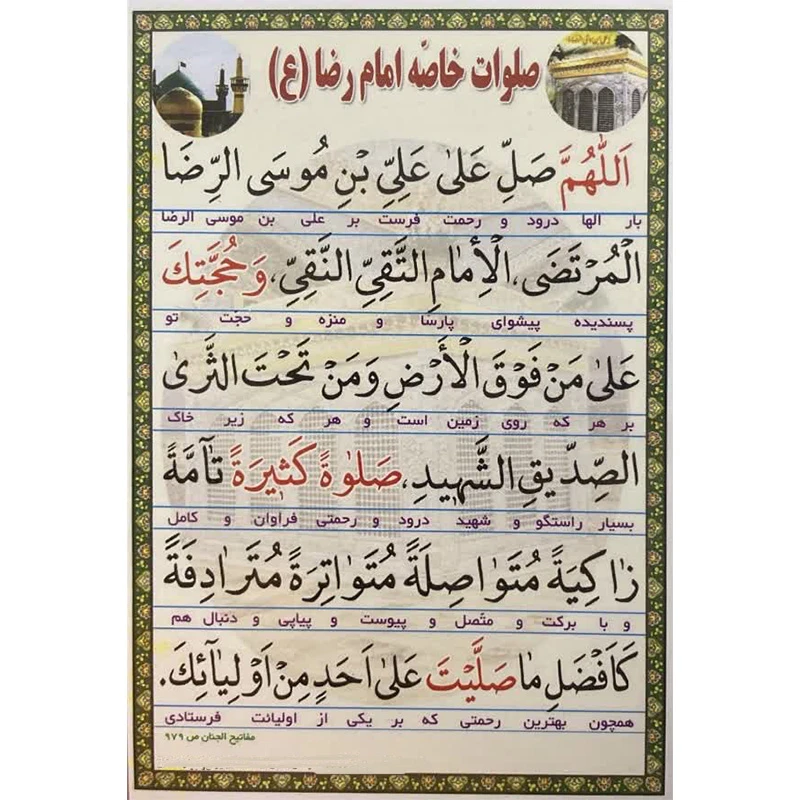 صلوات خاصّه امام رضا (ع)
اَللّٰهُمَّ صَلِّ عَلىٰ عَلِيِّ بْنِ مُوسَى الرِّضَا
بار الها درود و رحمت فرست بر علی بن موسی الرضا
الْمُرْتَضَى، الْاِمٰامِ التَّقِيِّ النَّقِيِّ، وَ حُجَّتِكَ
پسندیده پیشوای پارسا و منزه و حجت تو
عَلىٰ مَنْ فَوْقَ الْأَرْضِ وَ مَنْ تَحْتَ الثَّرىٰ
بر هر که روی زمین است و هر که زیر خاک
الصِّدّيقِ الشَّهيدِ، صَلوٰةً كَثيرَةً تٰآمَّةً
بسیار راستگو و شهید درود و رحمتی فراوان و کامل
زٰاكِيَةً مُتَوٰاصِلَةً مُتَوٰاتِرَةً مُتَرٰادِفَةً
و با برکت و متّصل و پیوست و پیاپی و دنبال هم
كَاَفْضَلِ مٰا صَلَّيْتَ عَلىٰ اَحَدٍ مِنْ اَوْلِيٰآئِكَ.
همچون بهترین رحمتی که بر یکی از اولیائت فرستادی
مفاتیح الجنان ص ۹۷۹